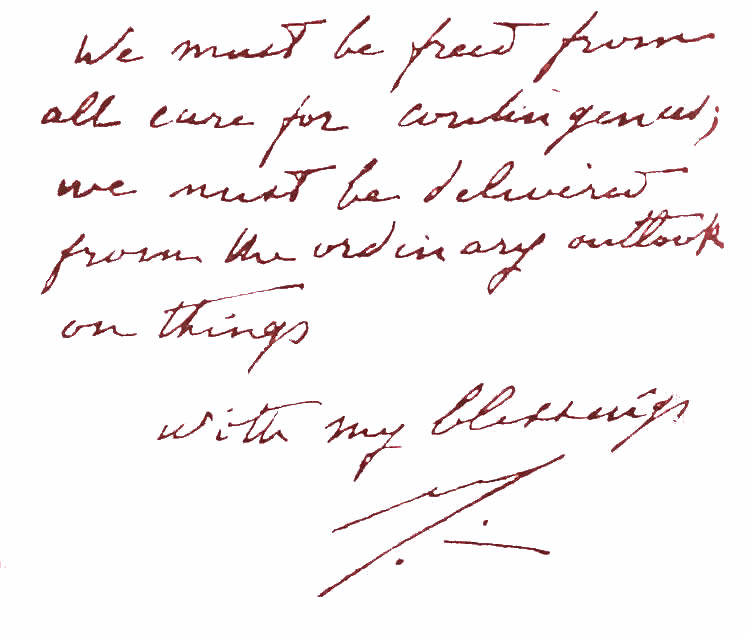 We must be freed from
all care for contingencies;
we must be delivered
from the ordinary outlook
on things
with my blessings